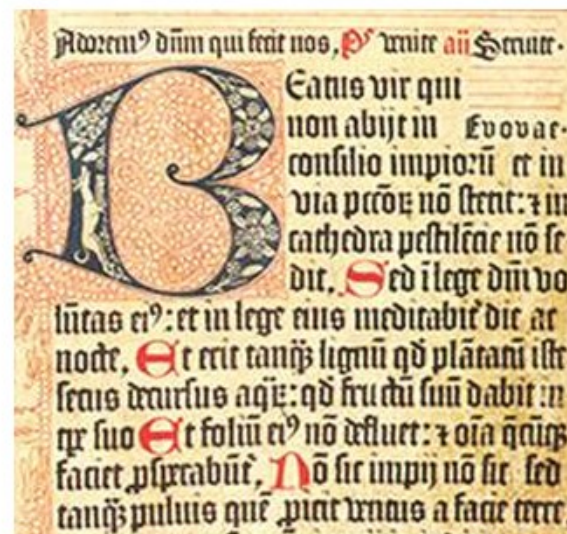 Adoremꝰ dūm qui fecit nos, Pͥ venite an̄ Seruite.
Beatus vir qui
non abijt in Evovae.
consilio impioꝝ et in
via pctōꝝ nō stetit: ⁊ in
cathedra pestilēcie nō se
dit, Sed ī lege dn̄i vo
lūtas eiꝰ: et in lege eius meditabit᷑ die ac
nocte, Et erit tanqꝫ lignū qd̄ plātatū iste
secus decursus aqꝝ: qd̄ fructū suū dabit in
tpe suo Et foliū eiꝰ nō defluet: ⁊ oīa qcūqꝫ
faciet ꝓsperabūt᷑, Nō sic impij nō sic sed
tanqꝫ puluis quē ꝓicit ventus a facie terre